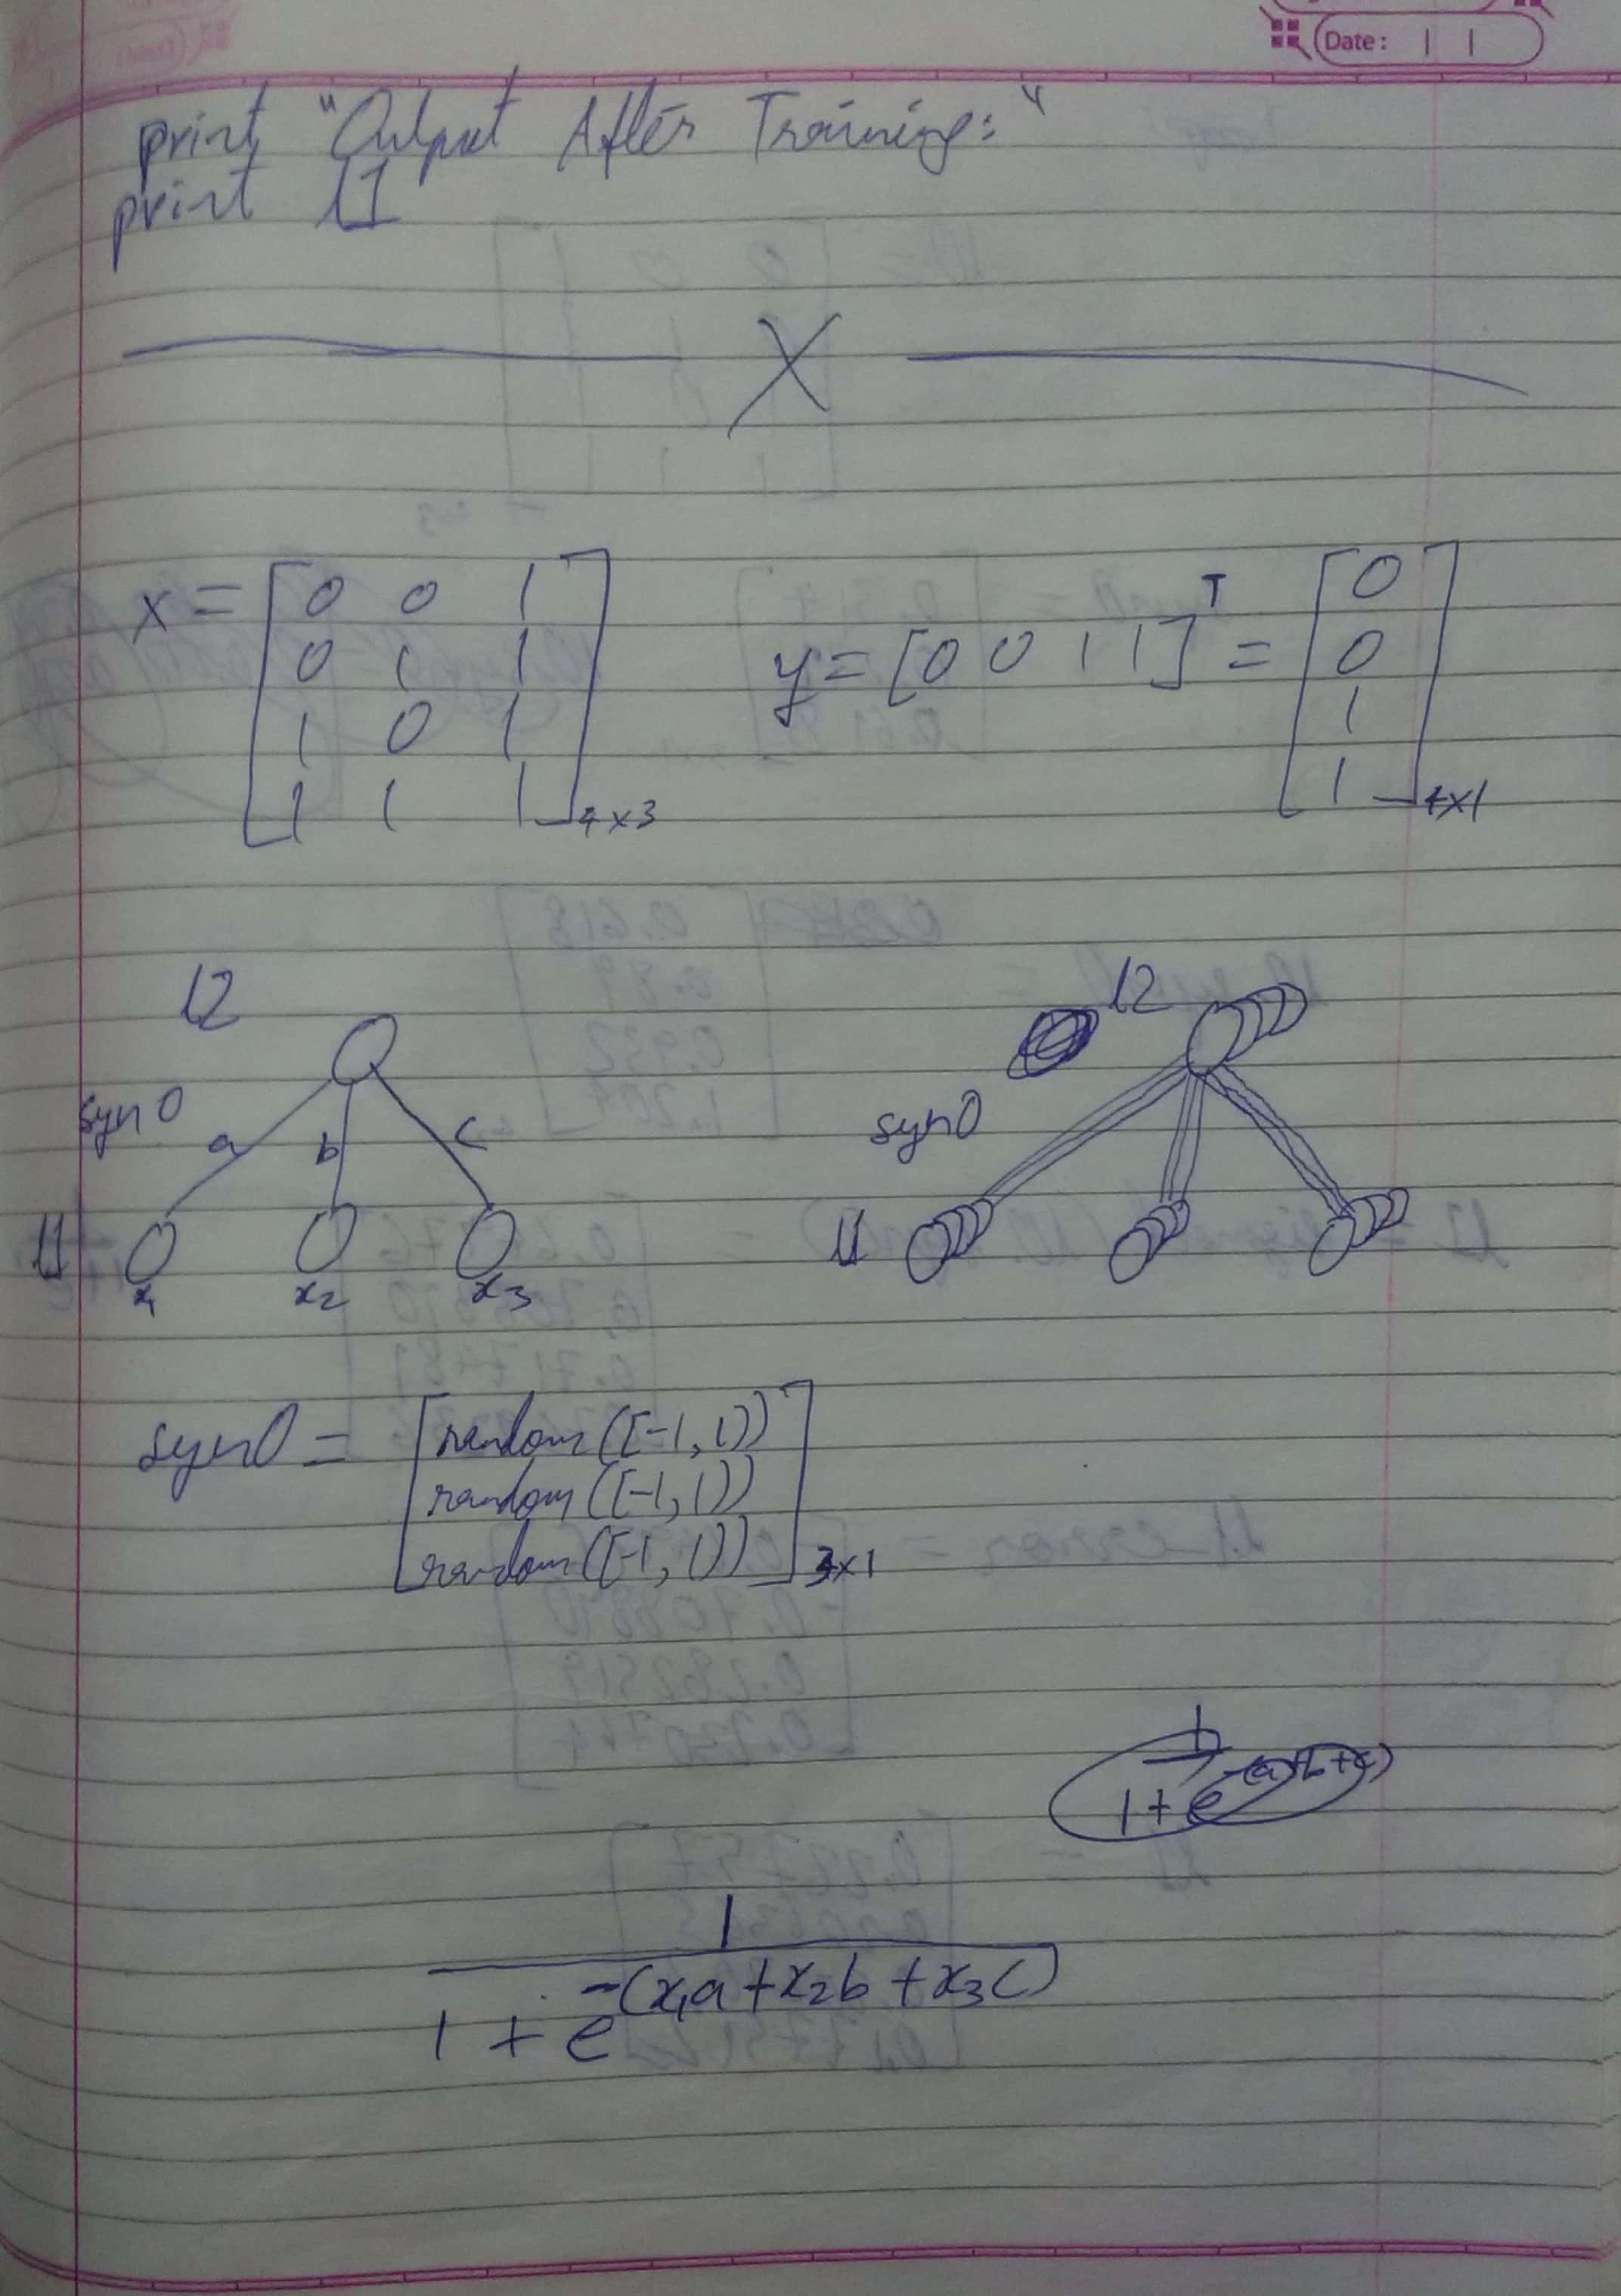 Date:
print "Output After Training:"
print l1
X
x = [0 0 1
0 1 1
1 0 1
1 1 1] 4x3
y = [0 0 1 1]ᵀ = [0
0
1
1] 4x1
l2
syn0
a b c
l1
x1 x2 x3
l2
syn0
l1
syn0 = [random([-1, 1))
random([-1, 1))
random([-1, 1))] 3x1
1
1 + e -(a+b+c)
1
1 + e -(x1a + x2b + x3c)